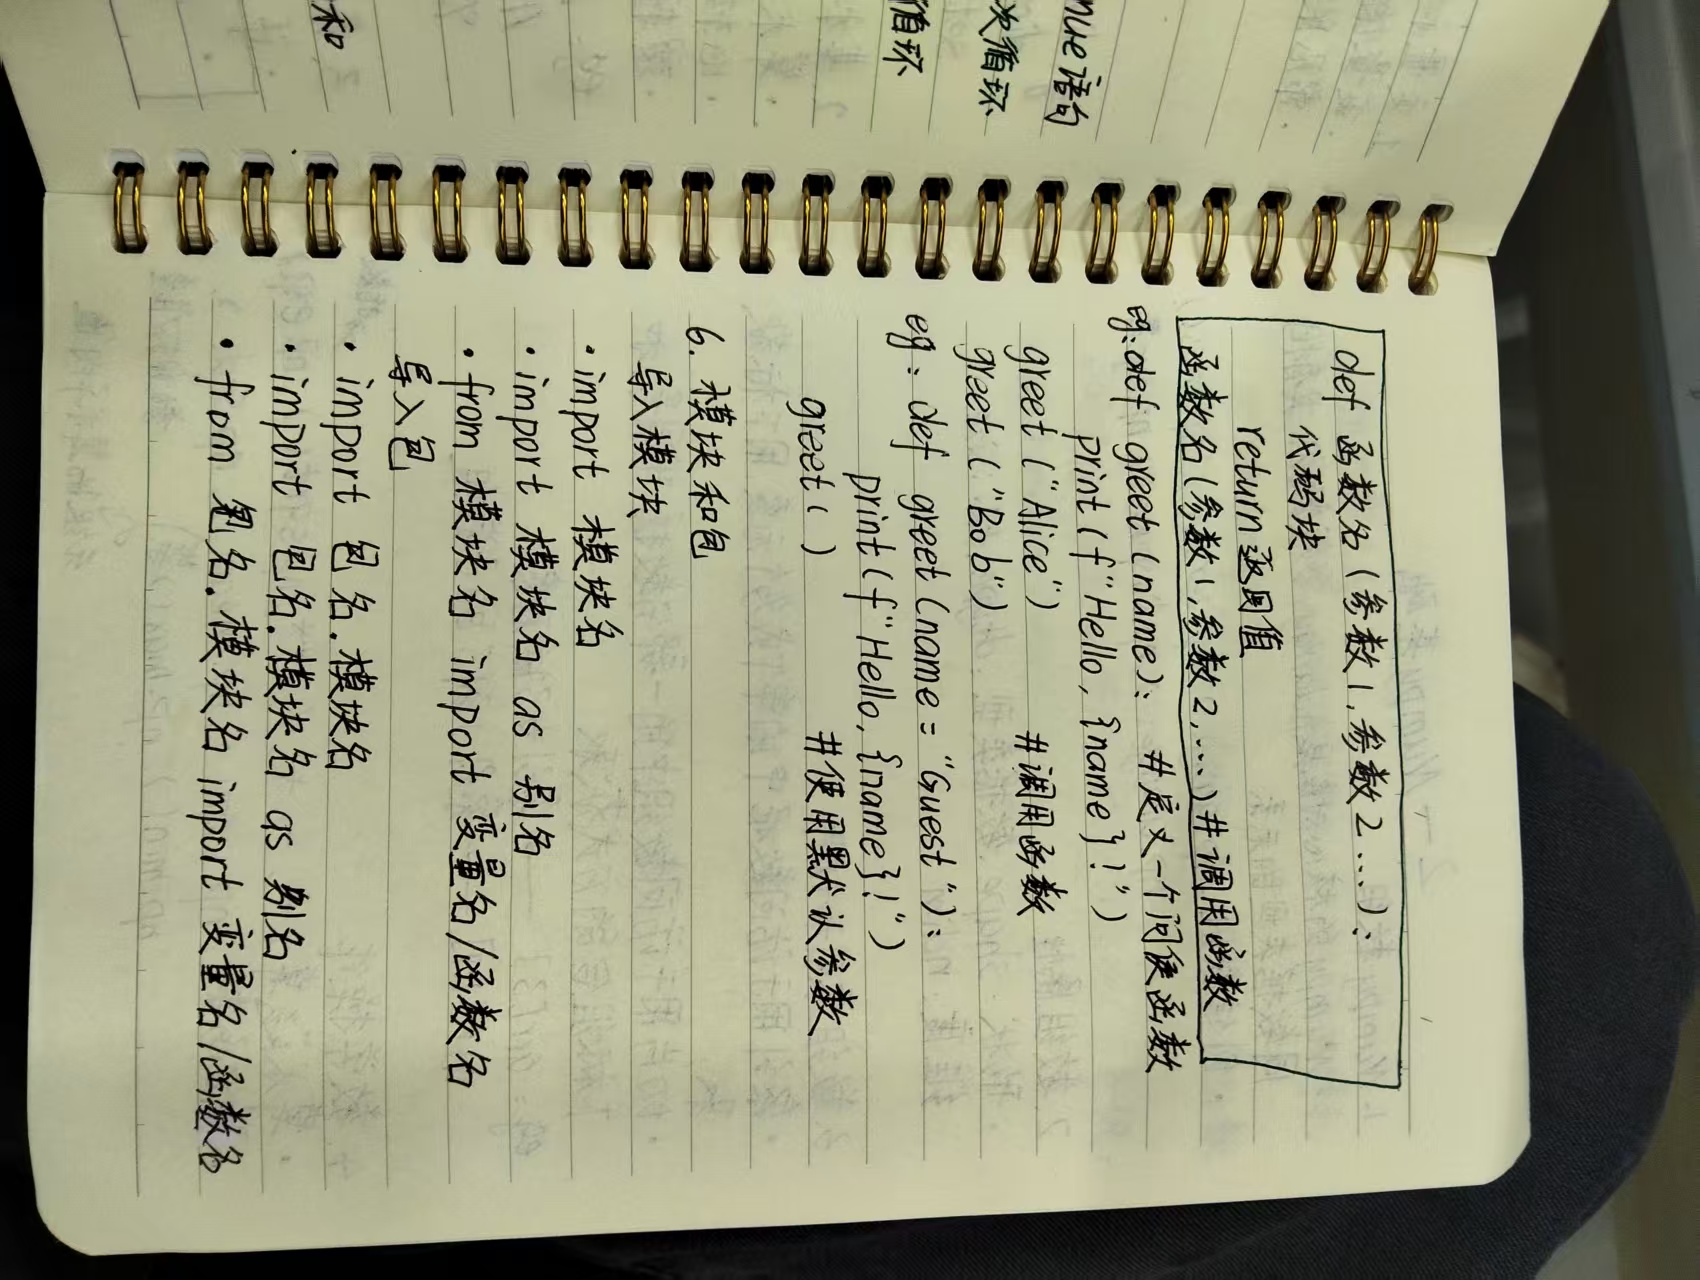 nue语句
次循环
循环
和
def 函数名(参数1,参数2....):
代码块
return 返回值
函数名(参数1,参数2,...)#调用函数
eg:def greet(name): #定义一个问候函数
print(f"Hello,{name}!")
greet("Alice") #调用函数
greet("Bob")
eg: def greet(name="Guest"):
print(f"Hello,{name}!")
greet() #使用默认参数
6. 模块和包
导入模块
· import 模块名
· import 模块名 as 别名
· from 模块名 import 变量名/函数名
导入包
· import 包名.模块名
· import 包名.模块名 as 别名
· from 包名.模块名 import 变量名/函数名